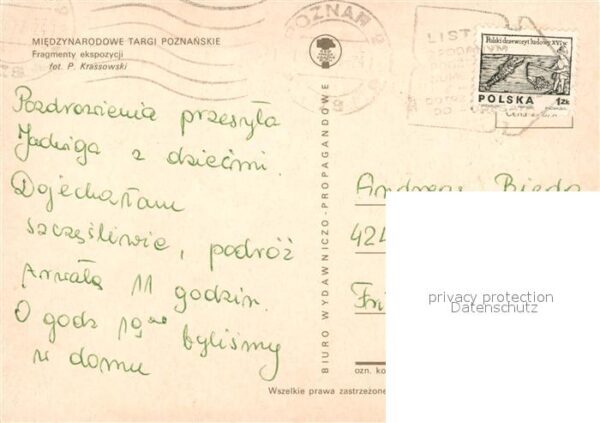 MIĘDZYNARODOWE TARGI POZNAŃSKIE
Fragmenty ekspozycji
fot. P. Krassowski
POZNAŃ
LIST
Polski drzeworyt ludowy XVI w.
POLSKA 1 ZŁ
Pozdrowienia przesyła
Jadwiga z dziećmi.
Dojechałam
szczęśliwie, podróż
trwała 11 godzin.
O godz 19 byliśmy
w domu
BIURO WYDAWNICZO-PROPAGANDOWE
Andreas
424
privacy protection
Datenschutz
ozn. ko
Wszelkie prawa zastrzeżone